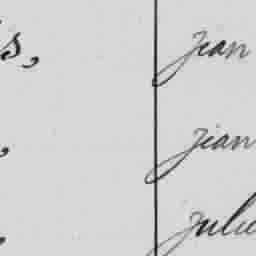 s, jean
, jean
, julie